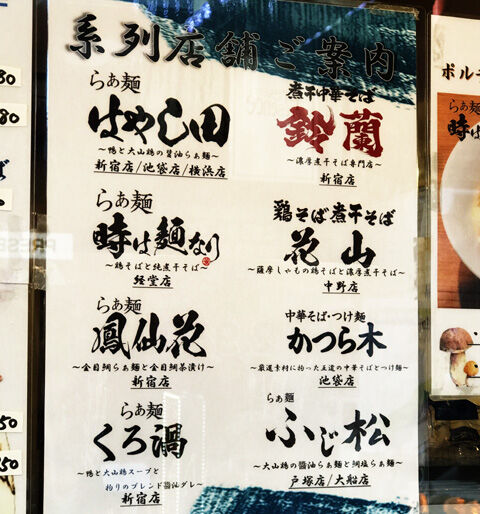 系列店舗ご案内
らぁ麺
はやし田
～鴨と大山鶏の醤油らぁ麺～
新宿店/池袋店/横浜店
煮干中華そば
鈴蘭
～濃厚煮干そば専門店～
新宿店
らぁ麺
時は麺なり
～鶏そばと純煮干そば～
経堂店
鶏そば煮干そば
花山
～薩摩しゃもの鶏そばと濃厚煮干そば～
中野店
らぁ麺
鳳仙花
～金目鯛らぁ麺と金目鯛茶漬け～
新宿店
中華そば・つけ麺
かつら木
～厳選素材に拘った王道の中華そばとつけ麺～
池袋店
らぁ麺
くろ渦
～鴨と大山鶏スープと
拘りのブレンド醤油ダレ～
新宿店
らぁ麺
ふじ松
～大山鶏の醤油らぁ麺と鯛塩らぁ麺～
戸塚店/大船店
ポルチ
らぁ麺
時は
80
80
ば
50
50
PRESE